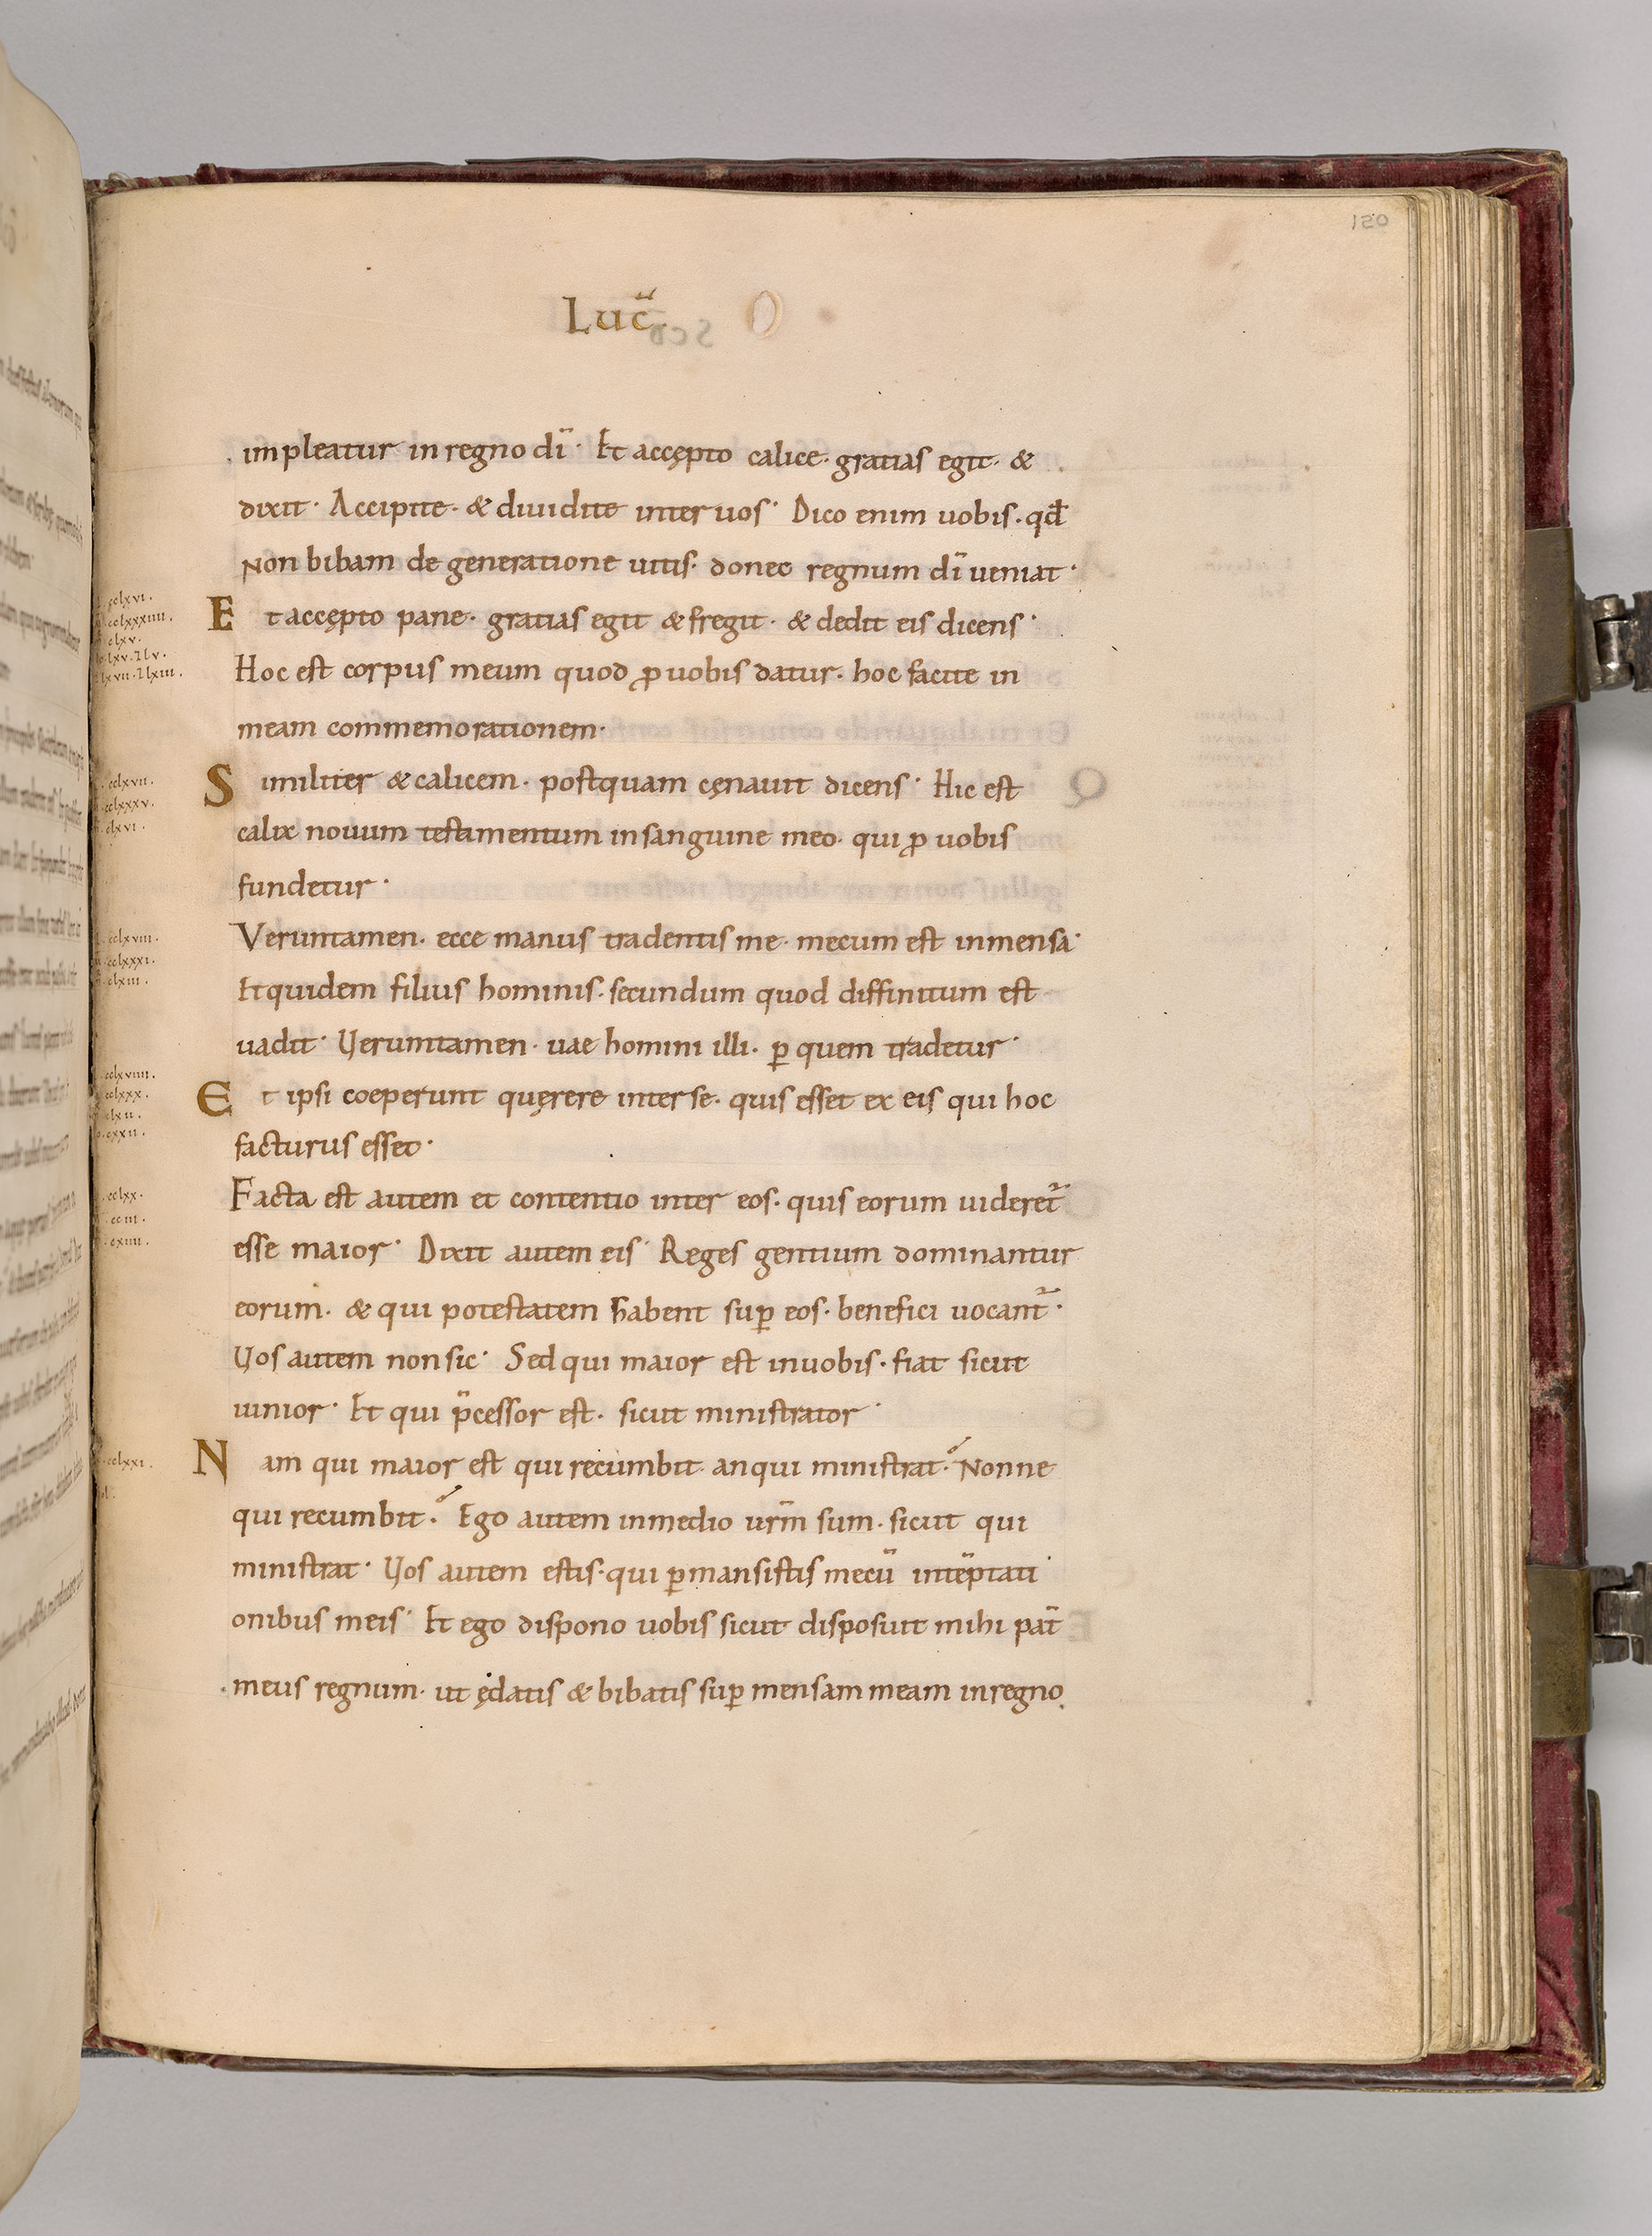 150
Luc̄
impleatur in regno dī· Et accępto calice· gratias egit· &
dixit· Accipite· & diuidite inter uos· Dico enim uobis· qđ
Non bibam de generatione uitis· donec regnum dī ueniat·
cclxvi.
cclxxxiiii.
clxv.
lxv. lv.
lxvii. lxiii.
Et accępto pane· gratias egit & fregit· & dedit eis dicens·
Hoc est corpus meum quod ꝓ uobis datur· hoc facite in
meam commemorationem·
cclxvii.
cclxxxv.
clxvi.
Similiter & calicem· postquam cęnauit dicens· Hic est
calix nouum testamentum in sanguine meo· qui ꝓ uobis
fundetur·
cclxviii.
cclxxxi.
clxiii.
Veruntamen· ecce manus tradentis me· mecum est in mensa·
Et quidem filius hominis· secundum quod diffinitum est
uadit· Veruntamen· uae homini illi· ꝑ quem tradetur·
cclxviiii.
cclxxx.
clxii.
cxxii.
Et ipsi coeperunt quęrere inter se· quis esset ex eis qui hoc
facturus esset·
cclxx.
cciii.
cxiiii.
Facta est autem et contentio inter eos· quis eorum uideret̄
esse maior· Dixit autem eis· Reges gentium dominantur
eorum· & qui potestatem habent suꝑ eos· benefici uocant̄·
Vos autem non sic· Sed qui maior est in uobis· fiat sicut
iunior· Et qui p̄cessor est· sicut ministrator·
cclxxi.
Nam qui maior est qui recumbit· an qui ministrat? Nonne
qui recumbit? Ego autem in medio ur̄m sum· sicut qui
ministrat· Vos autem estis· qui ꝑmansistis mecū in tēptati
onibus meis· Et ego dispono uobis sicut disposuit mihi pat̄
meus regnum· ut ędatis & bibatis suꝑ mensam meam in regno